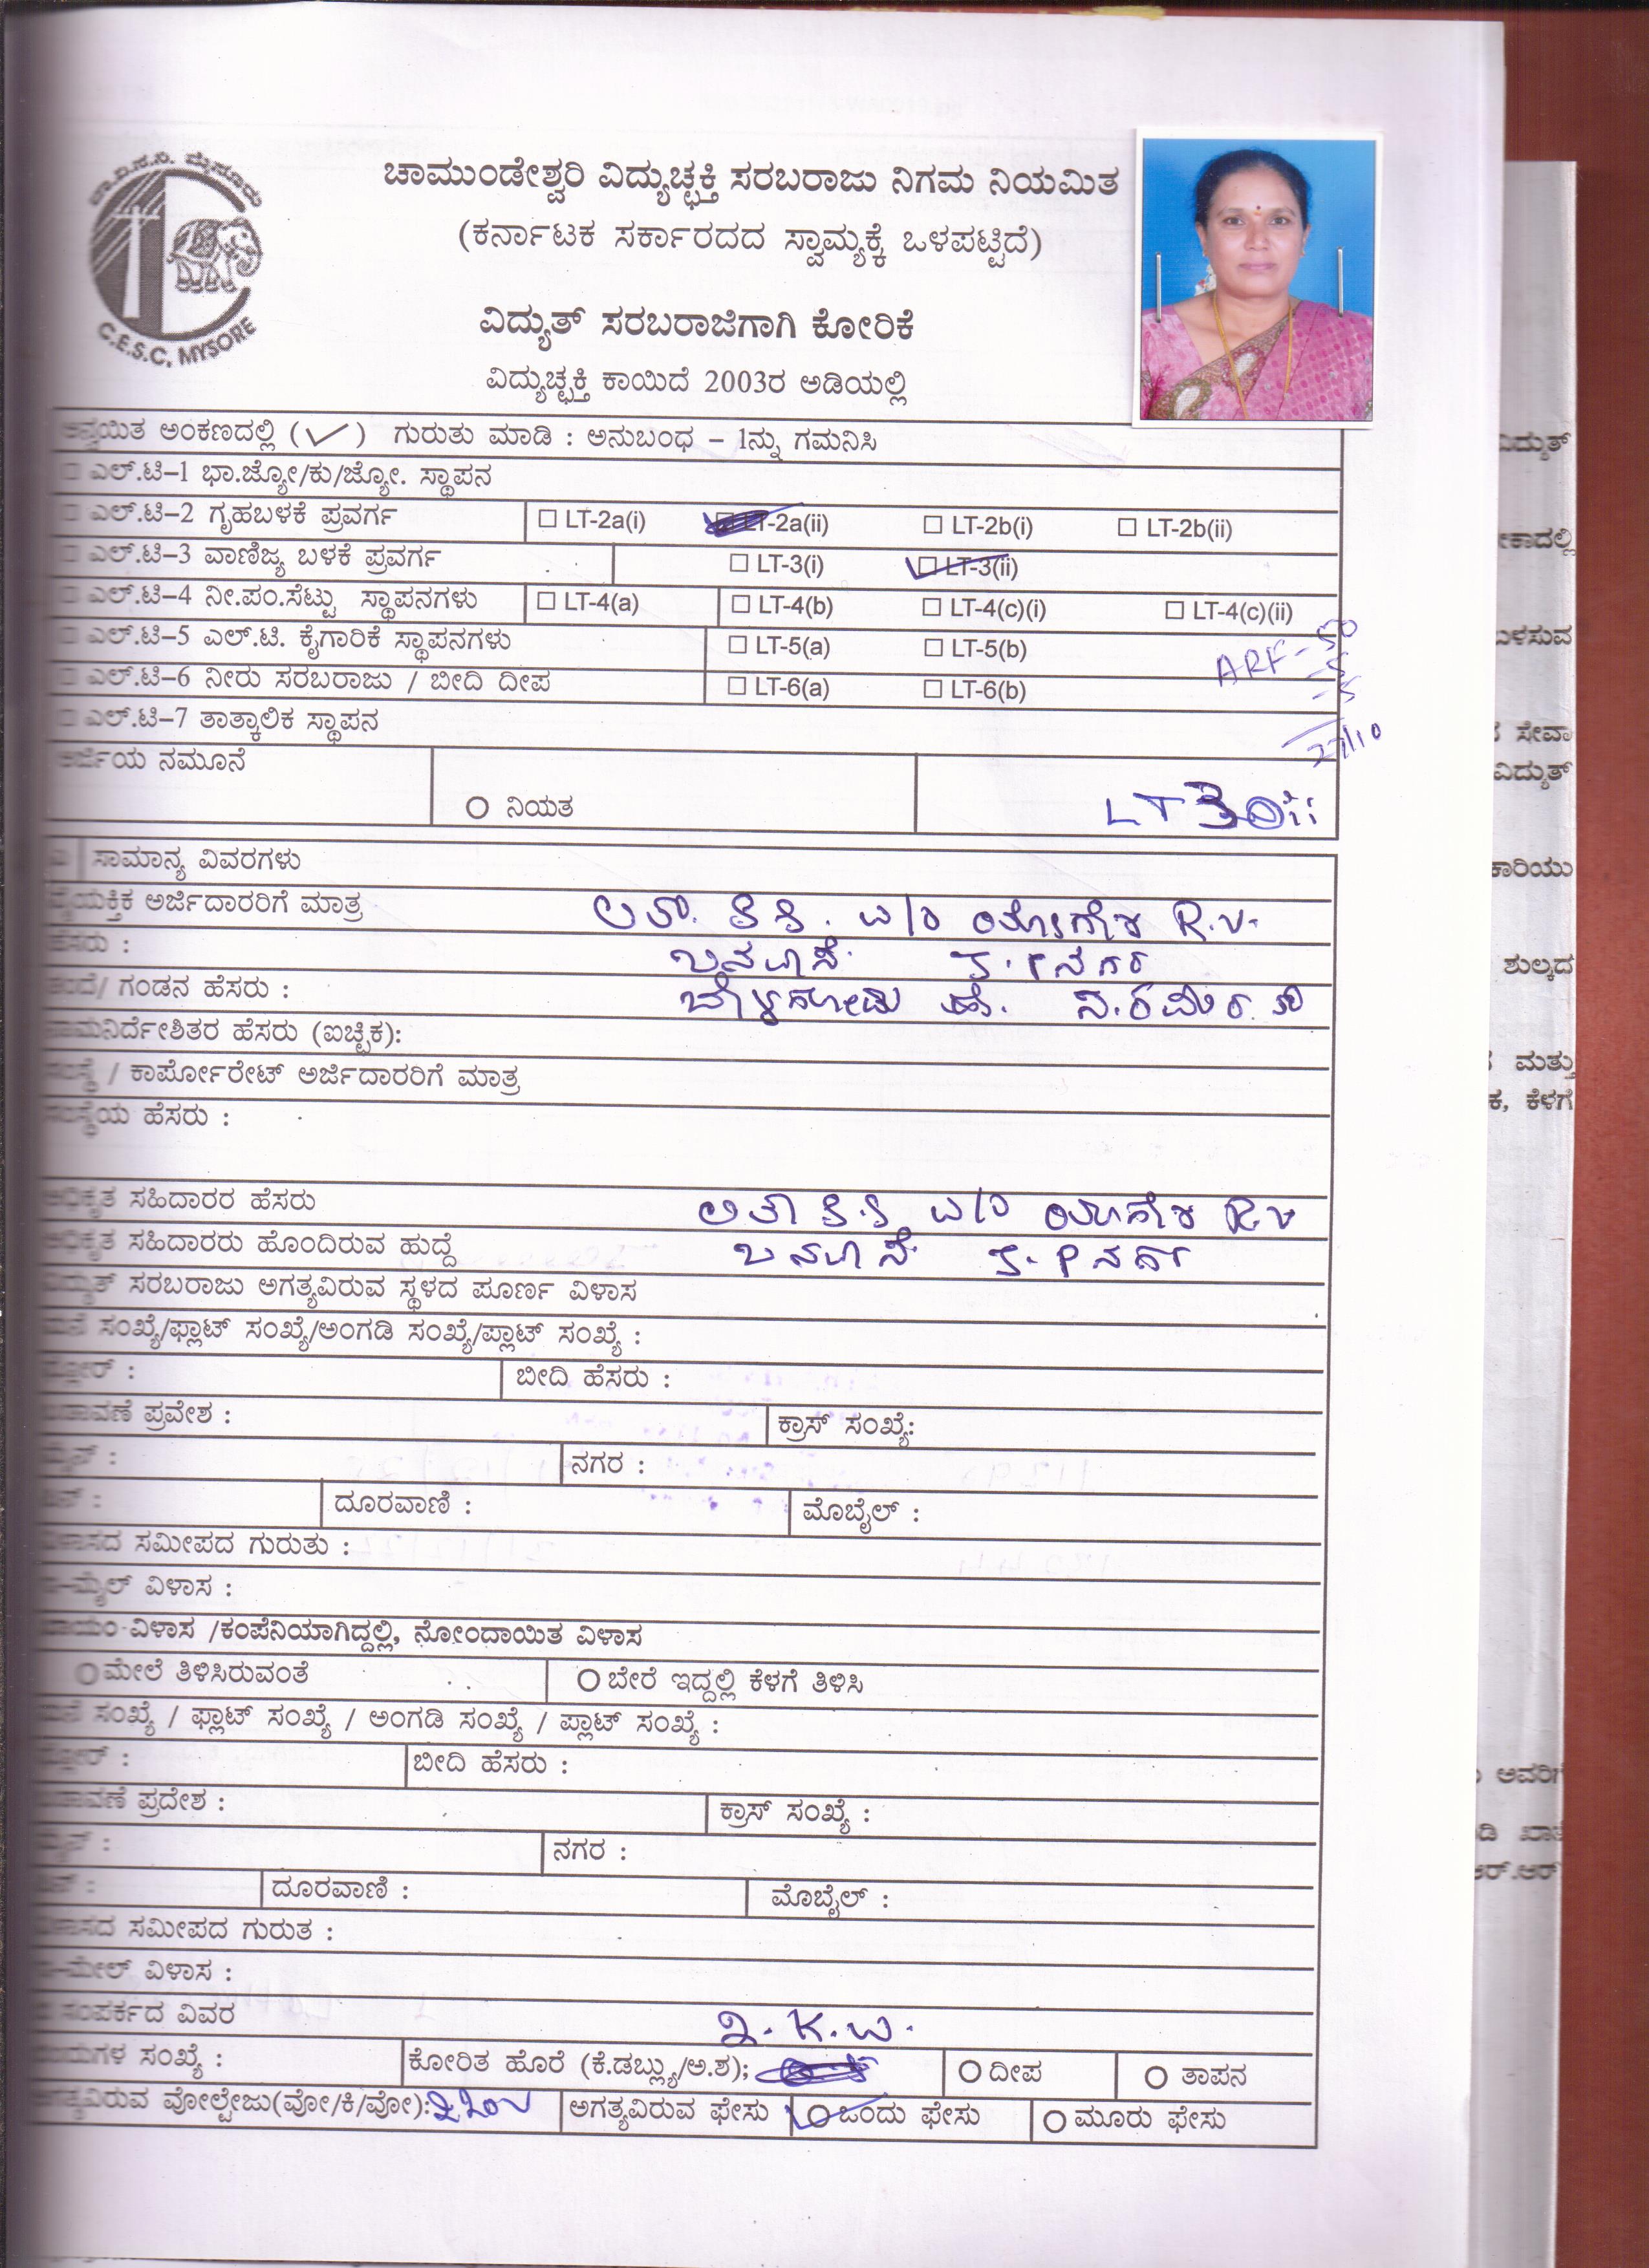 ಚಾ.ವಿ.ಸ.ನಿ. ಮೈಸೂರು
C.E.S.C, MYSORE
ಚಾಮುಂಡೇಶ್ವರಿ ವಿದ್ಯುಚ್ಛಕ್ತಿ ಸರಬರಾಜು ನಿಗಮ ನಿಯಮಿತ
(ಕರ್ನಾಟಕ ಸರ್ಕಾರದದ ಸ್ವಾಮ್ಯಕ್ಕೆ ಒಳಪಟ್ಟಿದೆ)
ವಿದ್ಯುತ್ ಸರಬರಾಜಿಗಾಗಿ ಕೋರಿಕೆ
ವಿದ್ಯುಚ್ಛಕ್ತಿ ಕಾಯಿದೆ 2003ರ ಅಡಿಯಲ್ಲಿ
ಅನ್ವಯಿತ ಅಂಕಣದಲ್ಲಿ (✓) ಗುರುತು ಮಾಡಿ : ಅನುಬಂಧ – 1ನ್ನು ಗಮನಿಸಿ
ಎಲ್.ಟಿ–1 ಭಾ.ಜ್ಯೋ/ಕು/ಜ್ಯೋ. ಸ್ಥಾಪನ
ಎಲ್.ಟಿ–2 ಗೃಹಬಳಕೆ ಪ್ರವರ್ಗ LT-2a(i) LT-2a(ii) LT-2b(i) LT-2b(ii)
ಎಲ್.ಟಿ–3 ವಾಣಿಜ್ಯ ಬಳಕೆ ಪ್ರವರ್ಗ LT-3(i) LT-3(ii)
ಎಲ್.ಟಿ–4 ನೀ.ಪಂ.ಸೆಟ್ಟು ಸ್ಥಾಪನಗಳು LT-4(a) LT-4(b) LT-4(c)(i) LT-4(c)(ii)
ಎಲ್.ಟಿ–5 ಎಲ್.ಟಿ. ಕೈಗಾರಿಕೆ ಸ್ಥಾಪನಗಳು LT-5(a) LT-5(b)
ARF - 50
ಎಲ್.ಟಿ–6 ನೀರು ಸರಬರಾಜು / ಬೀದಿ ದೀಪ LT-6(a) LT-6(b)
ಎಲ್.ಟಿ–7 ತಾತ್ಕಾಲಿಕ ಸ್ಥಾಪನ
27/10
ಅರ್ಜಿಯ ನಮೂನೆ
ನಿಯತ
LT 3
ಸಾಮಾನ್ಯ ವಿವರಗಳು
ವೈಯಕ್ತಿಕ ಅರ್ಜಿದಾರರಿಗೆ ಮಾತ್ರ
R.V.
ಹೆಸರು :
ತಂದೆ/ ಗಂಡನ ಹೆಸರು :
ನಾಮನಿರ್ದೇಶಿತರ ಹೆಸರು (ಐಚ್ಛಿಕ):
ಸಂಸ್ಥೆ / ಕಾರ್ಪೋರೇಟ್ ಅರ್ಜಿದಾರರಿಗೆ ಮಾತ್ರ
ಸಂಸ್ಥೆಯ ಹೆಸರು :
ಅಧಿಕೃತ ಸಹಿದಾರರ ಹೆಸರು R.V
ಅಧಿಕೃತ ಸಹಿದಾರರು ಹೊಂದಿರುವ ಹುದ್ದೆ
ವಿದ್ಯುತ್ ಸರಬರಾಜು ಅಗತ್ಯವಿರುವ ಸ್ಥಳದ ಪೂರ್ಣ ವಿಳಾಸ
ಮನೆ ಸಂಖ್ಯೆ/ಫ್ಲಾಟ್ ಸಂಖ್ಯೆ/ಅಂಗಡಿ ಸಂಖ್ಯೆ/ಪ್ಲಾಟ್ ಸಂಖ್ಯೆ :
ಫ್ಲೋರ್ : ಬೀದಿ ಹೆಸರು :
ಬಡಾವಣೆ ಪ್ರವೇಶ : ಕ್ರಾಸ್ ಸಂಖ್ಯೆ:
ಮೈನ್ : ನಗರ :
ಪಿನ್ : ದೂರವಾಣಿ : ಮೊಬೈಲ್ :
ವಿಳಾಸದ ಸಮೀಪದ ಗುರುತು :
ಇ–ಮೈಲ್ ವಿಳಾಸ :
ಖಾಯಂ ವಿಳಾಸ /ಕಂಪೆನಿಯಾಗಿದ್ದಲ್ಲಿ, ನೋಂದಾಯಿತ ವಿಳಾಸ
ಮೇಲೆ ತಿಳಿಸಿರುವಂತೆ ಬೇರೆ ಇದ್ದಲ್ಲಿ ಕೆಳಗೆ ತಿಳಿಸಿ
ಮನೆ ಸಂಖ್ಯೆ / ಫ್ಲಾಟ್ ಸಂಖ್ಯೆ / ಅಂಗಡಿ ಸಂಖ್ಯೆ / ಪ್ಲಾಟ್ ಸಂಖ್ಯೆ :
ಫ್ಲೋರ್ : ಬೀದಿ ಹೆಸರು :
ಬಡಾವಣೆ ಪ್ರದೇಶ : ಕ್ರಾಸ್ ಸಂಖ್ಯೆ :
ಮೈನ್ : ನಗರ :
ಪಿನ್ : ದೂರವಾಣಿ : ಮೊಬೈಲ್ :
ವಿಳಾಸದ ಸಮೀಪದ ಗುರುತ :
ಇ–ಮೇಲ್ ವಿಳಾಸ :
ಸಂಪರ್ಕದ ವಿವರ
ಸಂಖ್ಯೆ : ಕೋರಿತ ಹೊರೆ (ಕೆ.ಡಬ್ಲ್ಯು/ಅ.ಶ); ದೀಪ ತಾಪನ
ಅಗತ್ಯವಿರುವ ವೋಲ್ಟೇಜು(ವೋ/ಕಿ/ವೋ): ಅಗತ್ಯವಿರುವ ಫೇಸು ಒಂದು ಫೇಸು ಮೂರು ಫೇಸು
ವಿದ್ಯುತ್
ಬಳಸುವ
ಸೇವಾ
ವಿದ್ಯುತ್
ಶುಲ್ಕದ
ಮತ್ತು
ಕೆಳಗೆ